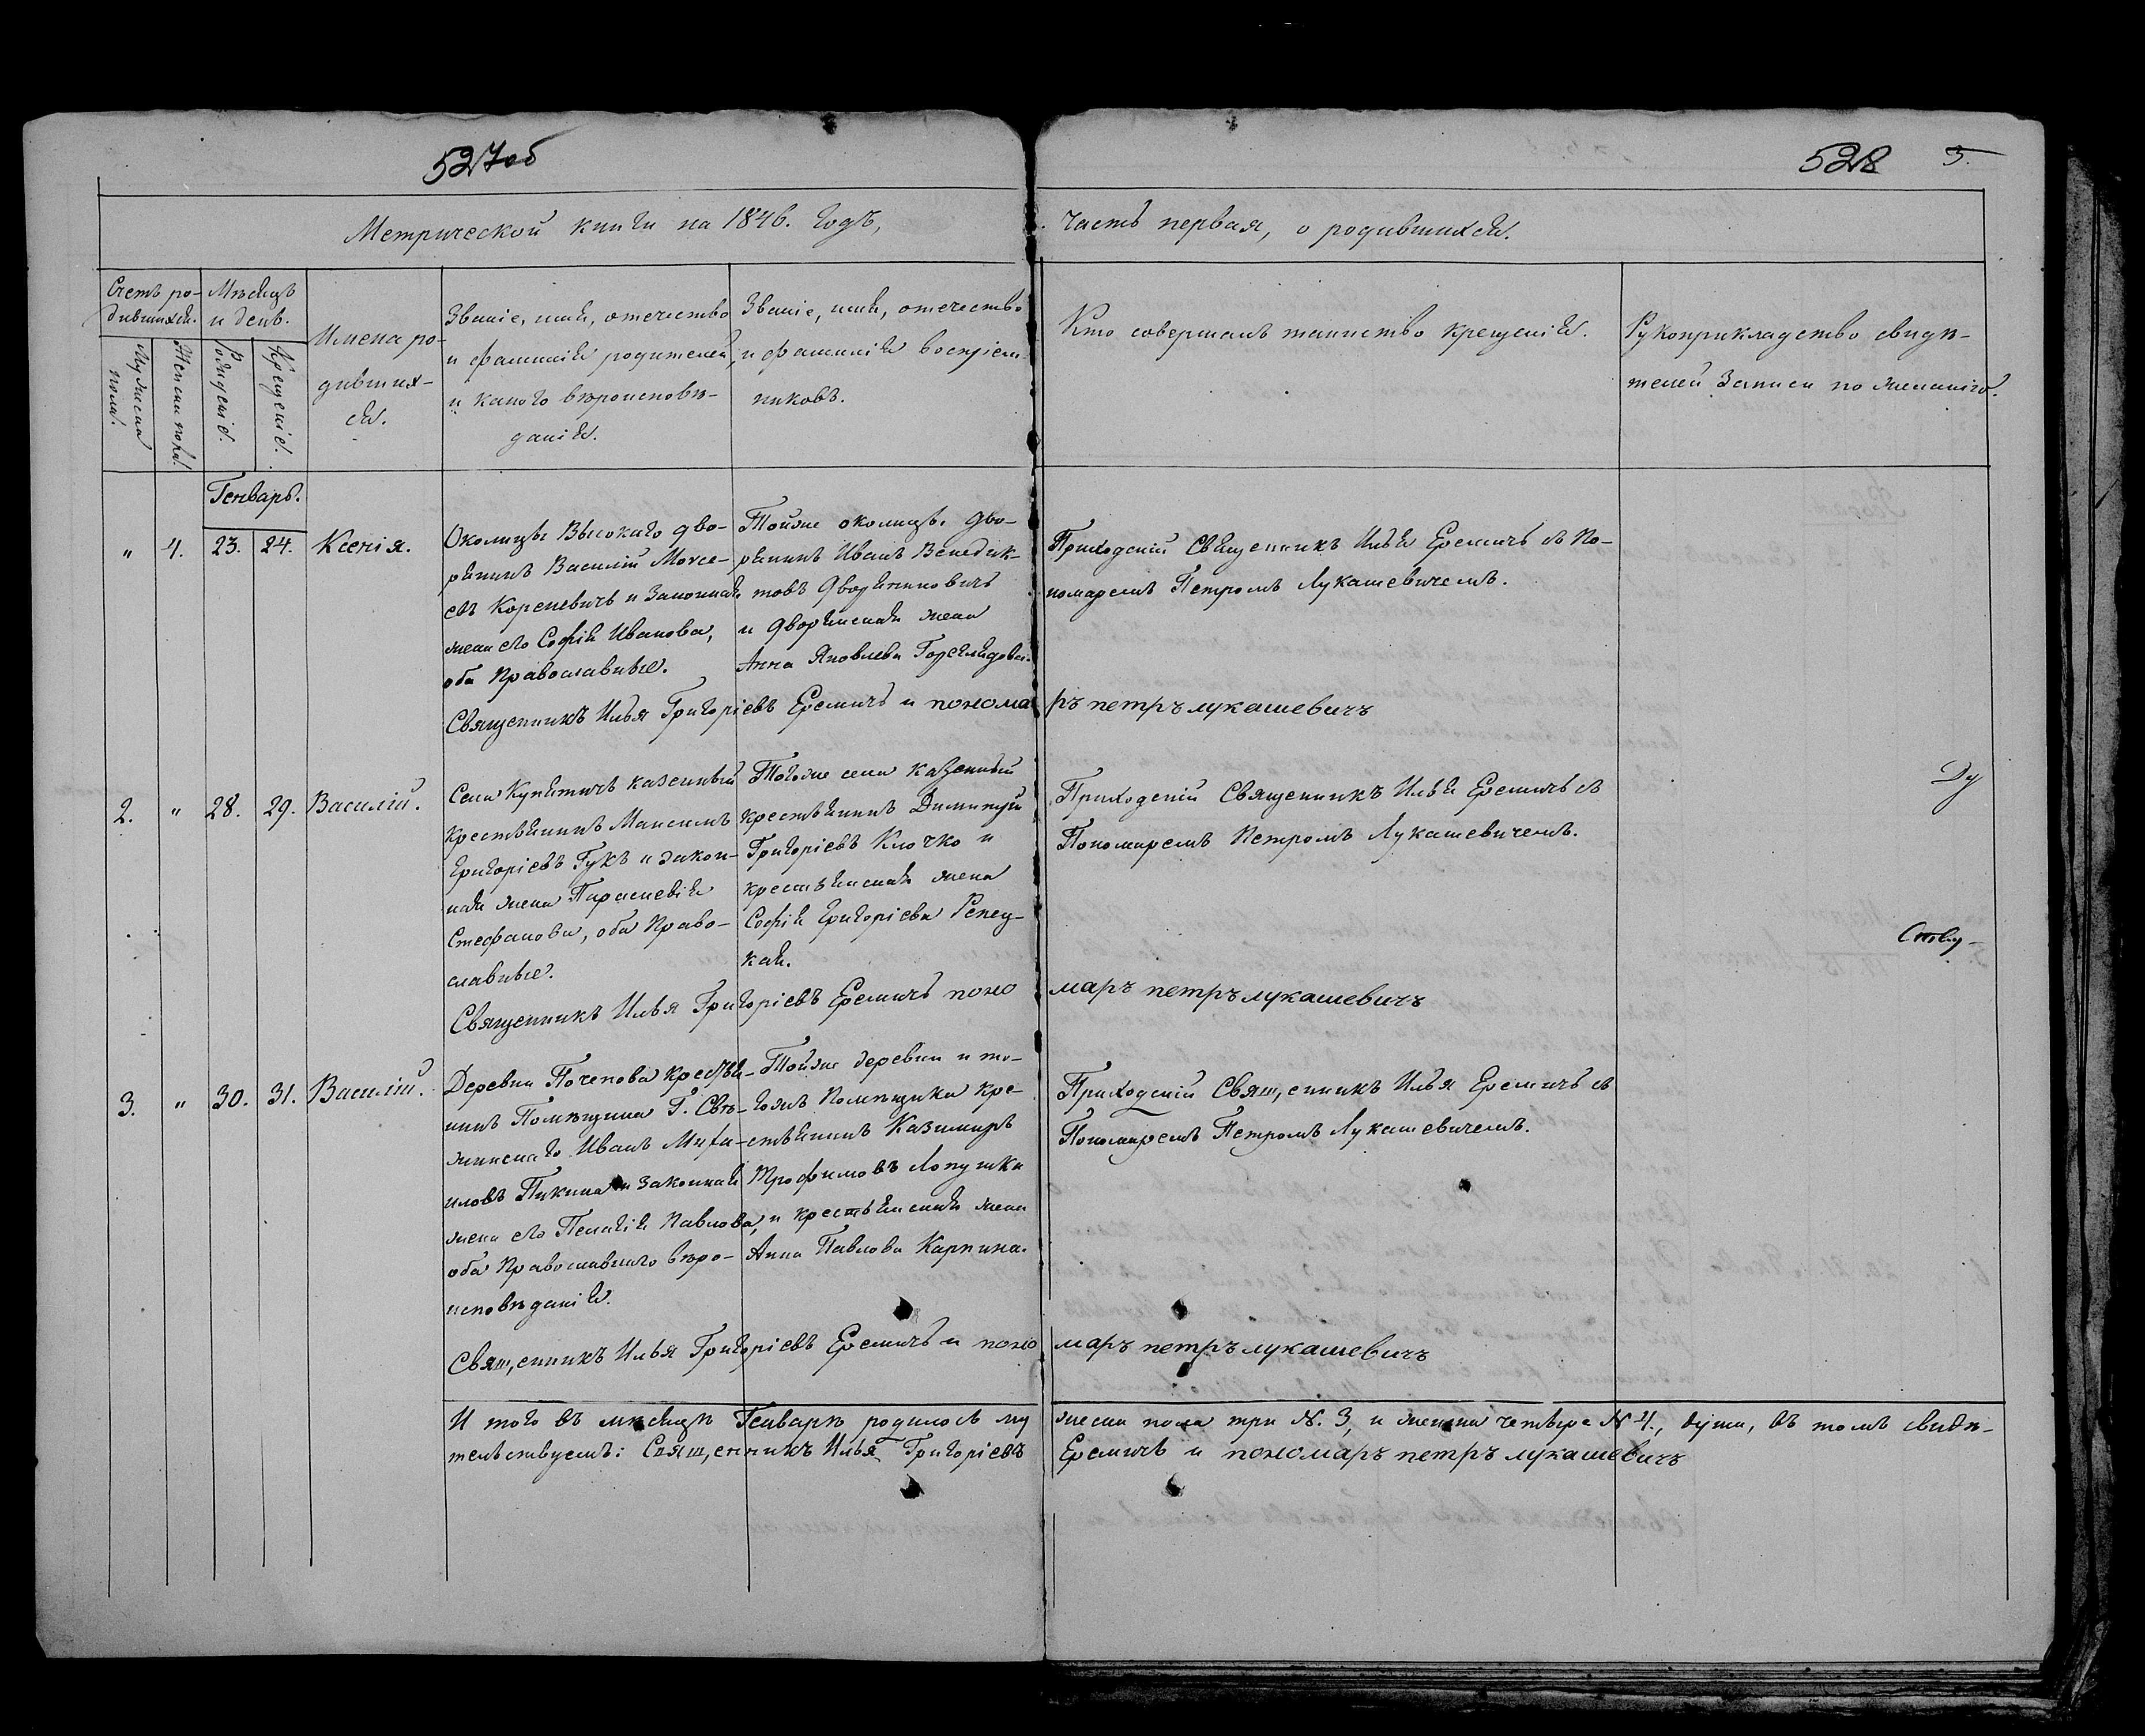 527об
528 5.
Метрической книги на 1846. годъ,
часть первая, о родившихся.
Счетъ ро-
дившихся.
Мужеска
пола.
Женска пола.
Мѣсяцъ
и день.
Рожденіе.
Крещеніе.
Имена ро-
дивших-
ся.
Званіе, имя, отечество
и фамилія родителей,
и какого вѣроисповѣ-
данія.
Званіе, имя, отечество
и фамилія воспріем-
никовъ.
Кто совершалъ таинство крещенія.
Рукоприкладство свидѣ-
телей записи по желанію.
Генварь.
" 4. 23. 24. Ксенія.
Околицы Высокаго дво-
рянинъ Василій Моисе-
евъ Кореневичъ и законная
жена его Софія Иванова,
оба Православные.
Тойже околицы дво-
рянинъ Иванъ Венедик-
товъ Дворяниновичъ
и дворянская жена
Анна Яковлева
Приходскій Священникъ Илья Еремичъ съ По-
номаремъ Петромъ Лукашевичемъ.
Священникъ Илья Григоріевъ Еремичъ и понома
ръ петръ лукашевичъ
2. " 28. 29. Василій.
Села Купятичъ казенный
крестьянинъ Максимъ
Григоріевъ Гукъ и закон-
ная жена Параскевія
Стефанова, оба Право-
славные.
Тогоже села казенный
крестьянинъ Димитрій
Григоріевъ Клочко и
крестьянская жена
Софія Григоріева Репец-
кая.
Приходскій Священникъ Илья Еремичъ съ
Пономаремъ Петромъ Лукашевичемъ.
Ду
Священникъ Илья Григоріевъ Еремичъ поно
маръ петръ лукашевичъ
3. " 30. 31. Василій.
Деревни Почепова крестья-
нинъ Помѣщика Г. Свѣ-
жинскаго Иванъ Миха-
иловъ Пикина и законная
жена его Пелагія Павлова,
оба Православнаго вѣро-
исповѣданія.
Тойже деревни и то-
гожъ Помѣщика кре-
стьянинъ Казимиръ
Трофимовъ Лопушка
и крестьянская жена
Анна Павлова Карпина.
Приходскій Священникъ Илья Еремичъ съ
Пономаремъ Петромъ Лукашевичемъ.
Священникъ Илья Григоріевъ Еремичъ и поно
маръ петръ лукашевичъ
И того въ мѣсяцѣ Генварѣ родилось му
жеска пола три №. 3, и женска четверо № 4., души, въ томъ свидѣ-
тельствуемъ: Священникъ Илья Григоріевъ
Еремичъ и пономаръ петръ лукашевичъ